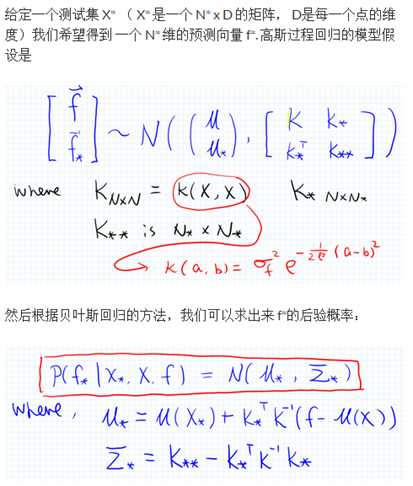 给定一个测试集 X* （ X*是一个 N* x D 的矩阵， D是每一个点的维
度）我们希望得到 一个 N* 维的预测向量 f*. 高斯过程回归的模型假
设是
[f⃗ f⃗*] ~ N( (μ μ*), [K K* K*ᵀ K**] )
where K_{N×N} = k(X, X) K* N×N*
K** is N* × N*
k(a, b) = σ_f² e^{-1/(2ℓ) (a-b)²}
然后根据贝叶斯回归的方法，我们可以求出来 f*的后验概率：
P(f* | X*, X, f) = N(μ*, Σ*)
where, μ* = μ(X*) + K*ᵀ K⁻¹(f - μ(X))
Σ* = K** - K*ᵀ K⁻¹ K*